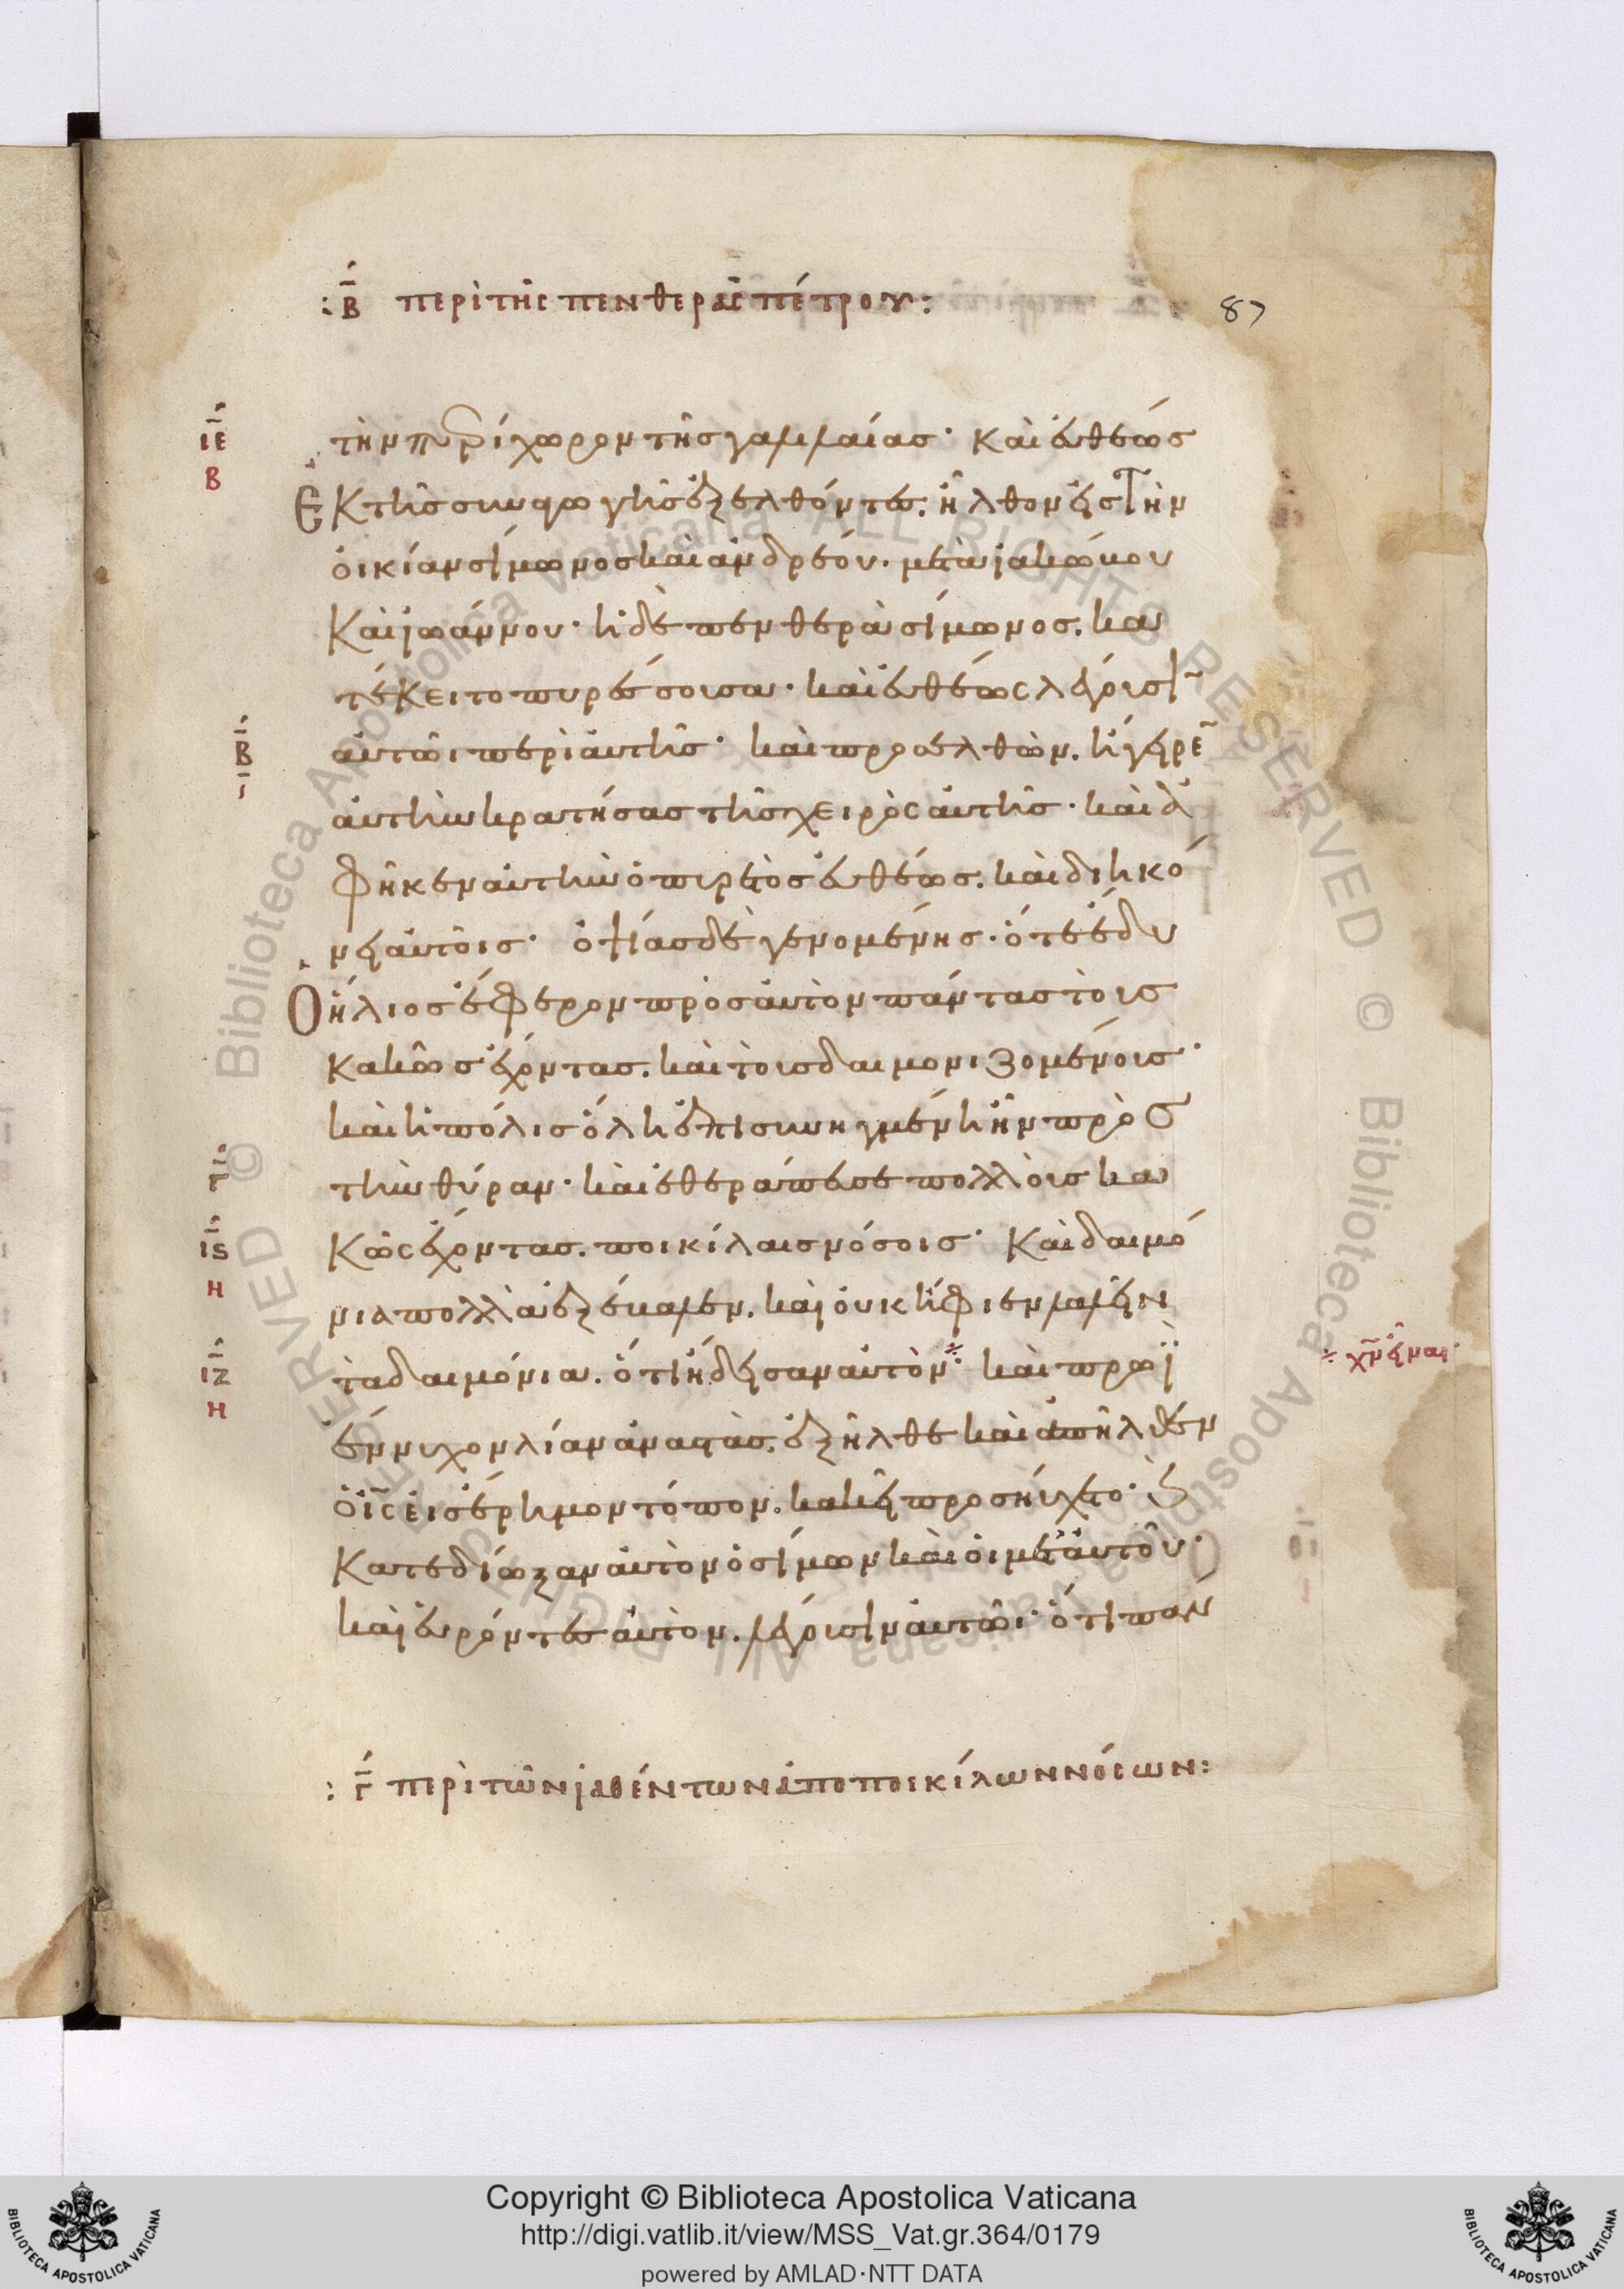 :Β̄ περὶ τῆς πενθερᾶς πέτρου:
87
ΙΕ
Β
τὴν περίχωρον τῆς γαλιλαίας· Καὶ εὐθέως
Ἐκ τῆς συναγωγῆς ἐξελθόντες. ἦλθον εἰς τὴν
οἰκίαν σίμωνος καὶ ἀνδρέου. μετὰ ἰακώβου
Καὶ ἰωάννου· ἡ δὲ πενθερὰ σίμωνος. κα
τέκειτο πυρέσσουσα· καὶ εὐθέως λέγουσι̅
Β̄
Ι
αὐτῶι περὶ αὐτῆς· καὶ προσελθὼν. ἤγειρε̅
αὐτὴν κρατήσας τῆς χειρὸς αὐτῆς· καὶ ἀ
φῆκεν αὐτὴν ὁ πυρετὸς εὐθέως. καὶ διηκό
νει αὐτοῖς· ὀψίας δὲ γενομένης. ὅτε ἔδυ
Ὁ ἥλιος ἔφερον πρὸς αὐτὸν πάντας τοὺς
Κακῶς ἔχοντας. καὶ τοὺς δαιμονιζομένους·
καὶ ἡ πόλις ὅλη ἐπισυνηγμένη ἦν πρὸς
Γ̄
τὴν θύραν· καὶ ἐθεράπευσε πολλοὺς κα
ΙϚ
Η
Κῶς ἔχοντας. ποικίλαις νόσοις· Καὶ δαιμό
νια πολλὰ ἐξέβαλεν. καὶ οὐκ ἤφιεν λαλεῖν
ΙΖ
Η
τὰ δαιμόνια. ὅτι ἤδεισαν αὐτὸν※· καὶ πρωῒ
※ χ̅ν̅ εἶναι·
ἔννυχον λίαν ἀναστὰς. ἐξῆλθε καὶ ἀπῆλθεν
ὁ ι̅ς̅ εἰς ἔρημον τόπον. κακεῖ προσηύχετο· ϗ
Κατεδίωξαν αὐτὸν ὁ σίμων καὶ οἱ μετ' αὐτοῦ·
καὶ εὑρόντες αὐτὸν. λέγουσιν αὐτῶι· ὅτι πάν
:Γ̄ περὶ τῶν ἰαθέντων ἀπὸ ποικίλων νόσων:
Copyright © Biblioteca Apostolica Vaticana
http://digi.vatlib.it/view/MSS_Vat.gr.364/0179
powered by AMLAD·NTT DATA
BIBLIOTECA APOSTOLICA VATICANA
BIBLIOTECA APOSTOLICA VATICANA
© Biblioteca Apostolica Vaticana ALL RIGHTS RESERVED © Biblioteca Apostolica Vaticana ALL RIGHTS RESERVED